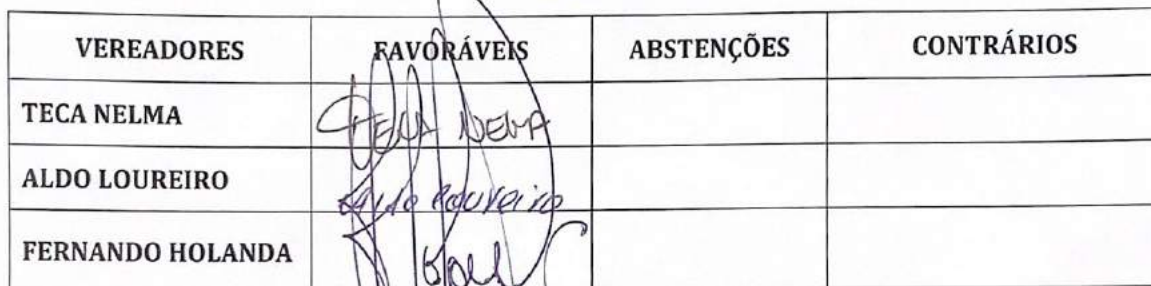 VEREADORES FAVORÁVEIS ABSTENÇÕES CONTRÁRIOS
TECA NELMA Teca Nelma
ALDO LOUREIRO Aldo Loureiro
FERNANDO HOLANDA